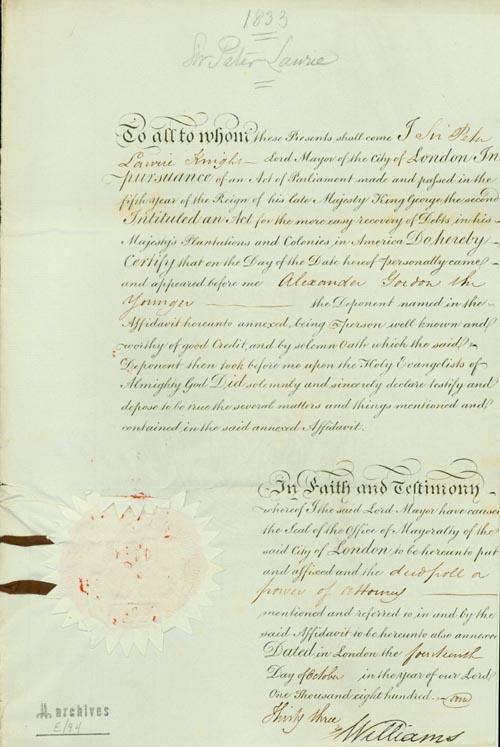 1833
Sir Peter Laurie
To all to whom these Presents shall come I Sir Peter
Laurie Knight Lord Mayor of the City of London In
pursuance of an Act of Parliament made and passed in the
fifth year of the Reign of his late Majesty King George the second
Intituled an Act for the more easy recovery of Debts, in his
Majesty's Plantations and Colonies in America Do hereby
Certify that on the Day of the Date hereof personally came
and appeared before me Alexander Gordon the
Younger the Deponent named in the
Affidavit hereunto annexed, being a person well known and
worthy of good Credit, and by solemn Oath which the said
Deponent then took before me upon the Holy Evangelists of
Almighty God Did solemnly and sincerely declare testify and
depose to be true the several matters and things mentioned and
contained in the said annexed Affidavit.
In Faith and Testimony
whereof I the said Lord Mayor have caused
the Seal of the Office of Mayoralty of the
said City of London to be hereunto put
and affixed and the deed poll or
power of attorney
mentioned and referred to in and by the
said Affidavit to be hereunto also annexed
Dated in London the fourteenth
Day of October in the year of our Lord
One Thousand eight hundred and
Thirty three
Williams
archives
E/94